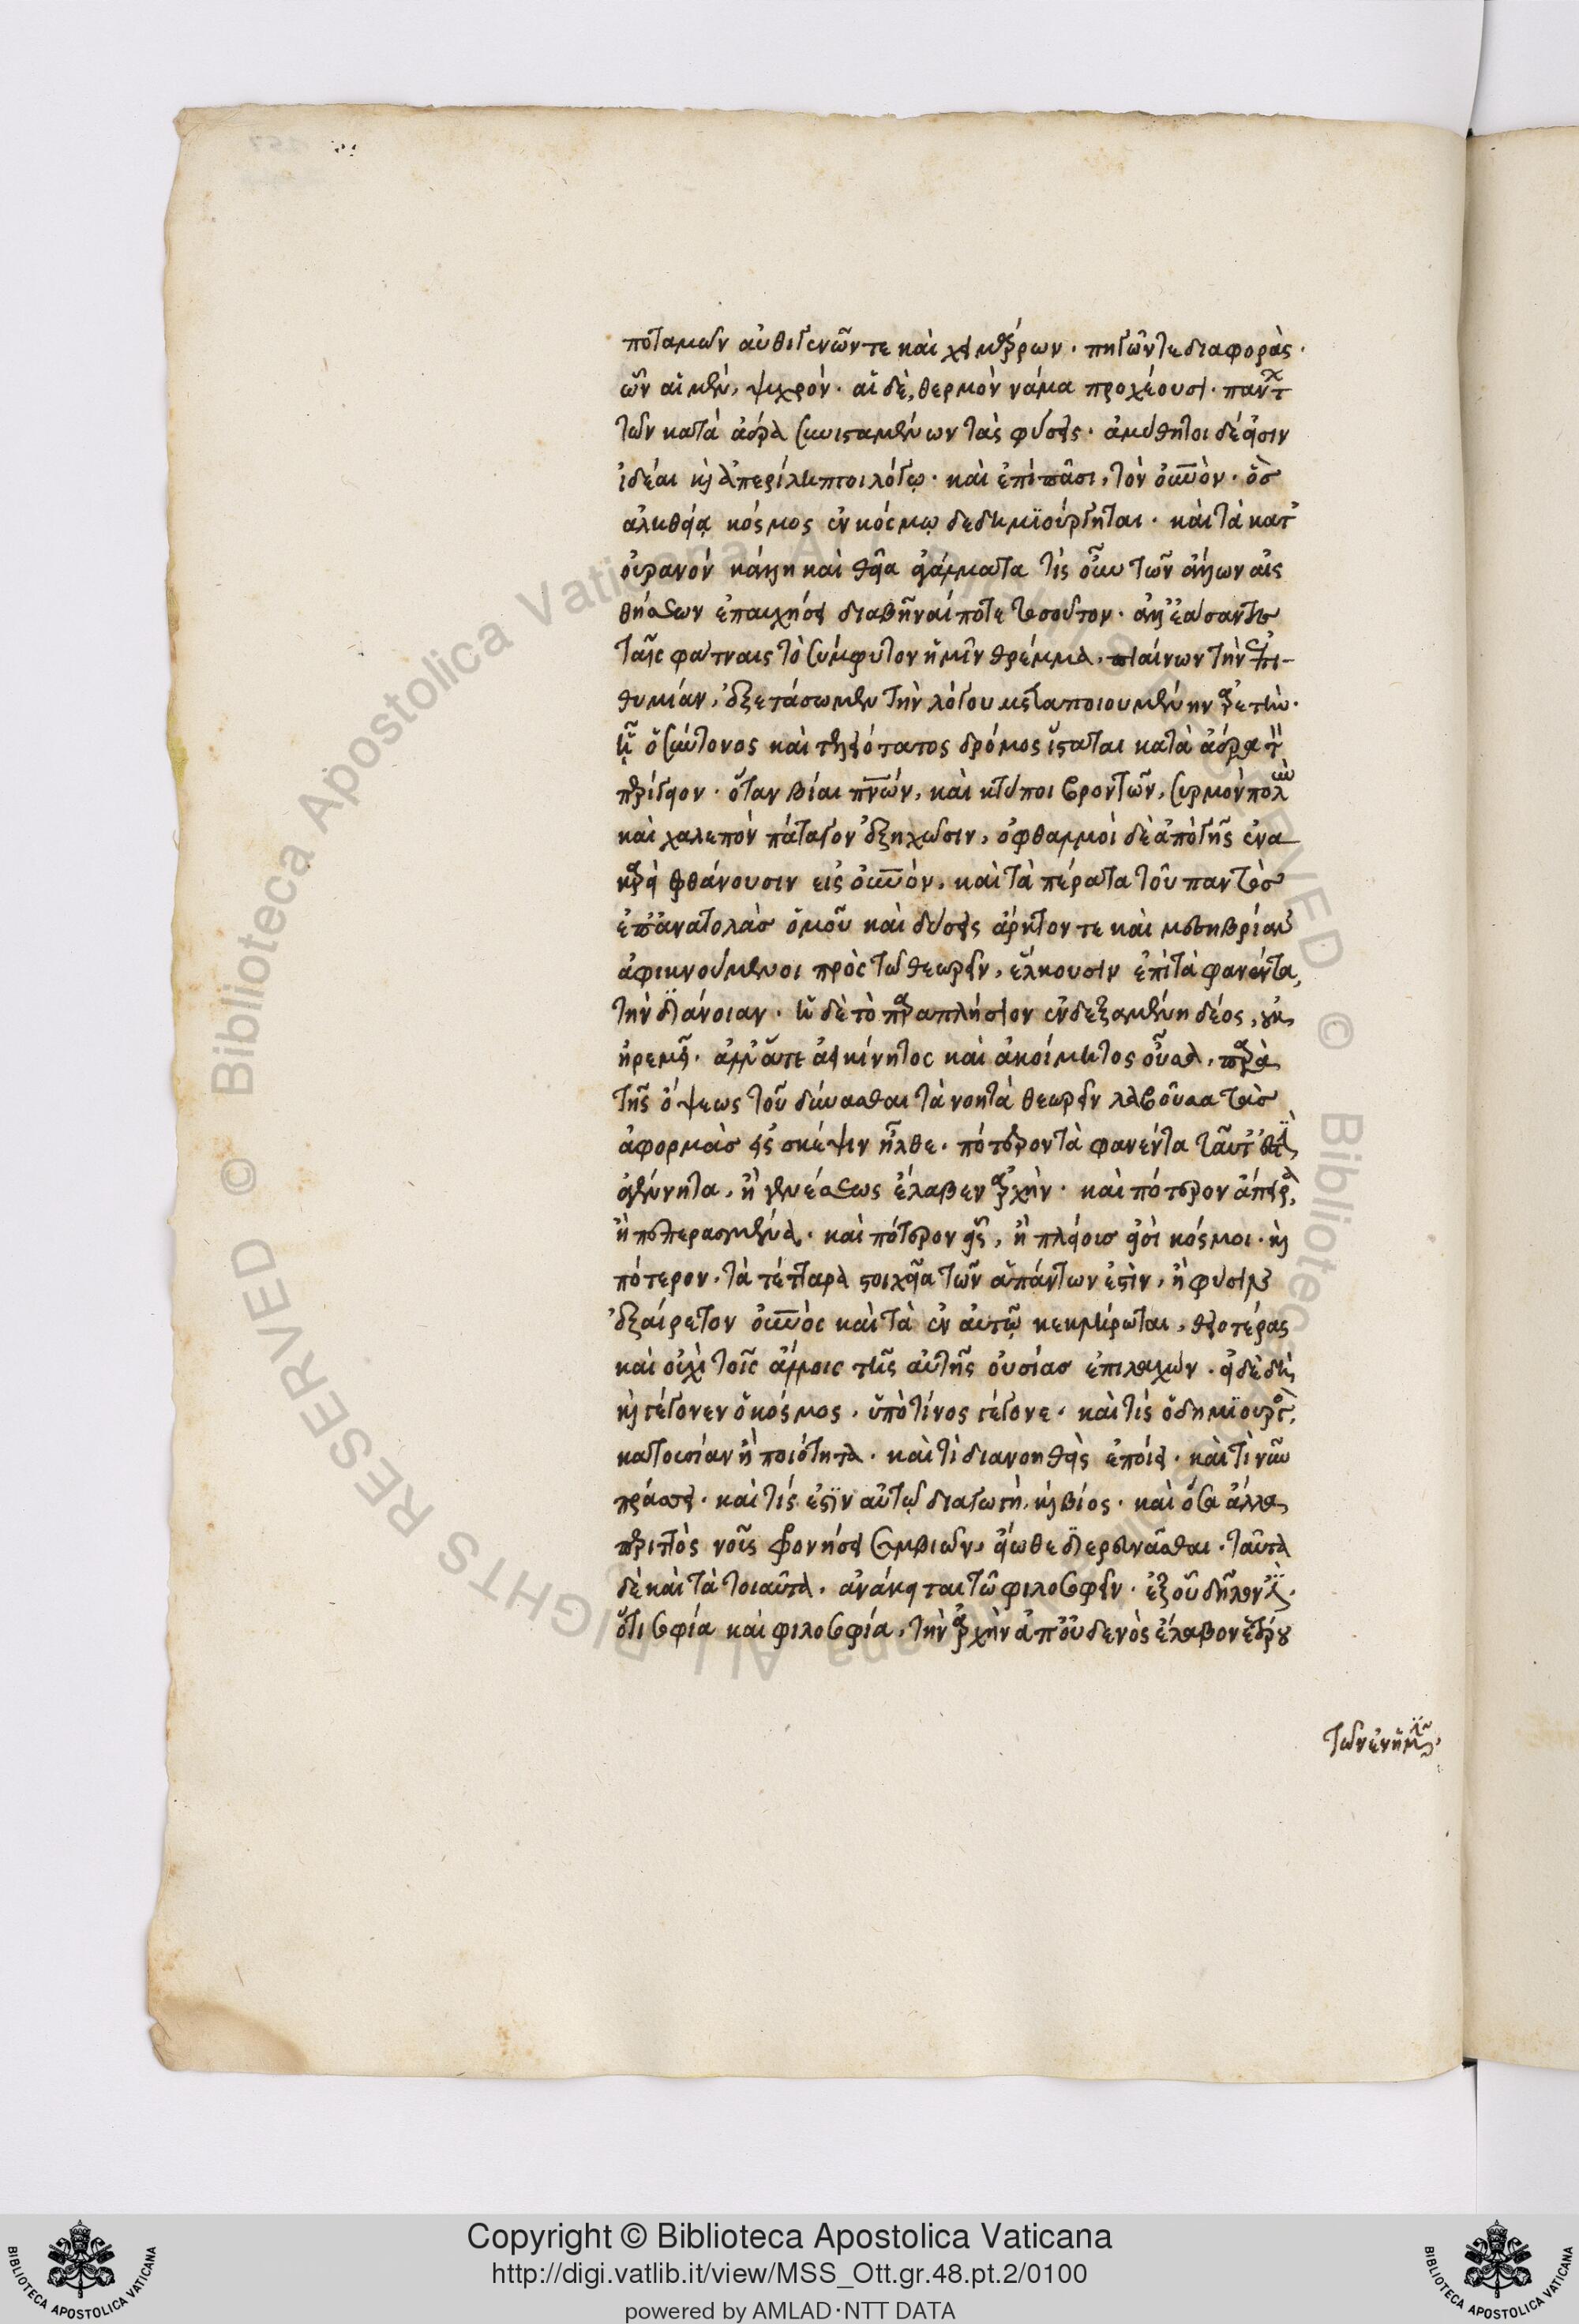 ποταμῶν αὐθιγενῶν τε καὶ χειμάρρων · πηγῶν τε διαφορὰς ·
ὧν αἱ μὲν, ψυχρόν · αἱ δὲ, θερμὸν νᾶμα προχέουσι · παντ
τῶν κατὰ ἀέρα συνισταμένων τὰς φύσεις · ἀμύθητοι δέ εἰσιν
ἰδέαι καὶ ἀπερίληπτοι λόγῳ · καὶ ἐπὶ πᾶσι, τὸν οὐνὸν · ὃς
ἀληθείᾳ κόσμος ἐν κόσμῳ δεδημϊούργηται · καὶ τὰ κατ'
οὐρανὸν κάλλη καὶ θεῖα ἀγάλματα τίς οὖν τῶν ἄλλων αἰσ
θήσεων ἐπαυχήσει διαβῆναί ποτε τοσοῦτον · ἀλλ' ἐάσαντες
ταῖς φάτναις τὸ σύμφυτον ἡμῖν θρέμμα, πιαίνων τὴν ἐπι-
θυμίαν, ἐξετάσωμεν τὴν λόγου μεταποιουμένην ἀρετὴν ·
ᾗ ὁ σύντονος καὶ δρόμος ἵσταται κατὰ ἀέρα τὸν
πρίγειον · ὅταν βίαι πνῶν, καὶ κτύποι βροντῶν, συρμὸν πολὺν
καὶ χαλεπὸν πάταγον ἐξηχῶσιν, ὀφθαλμοὶ δὲ ἀπὸ γῆς ἐν ἀ
καρεῖ φθάνουσιν εἰς οὐνὸν, καὶ τὰ πέρατα τοῦ παντὸς
ἐπ' ἀνατολὰς ὁμοῦ καὶ δύσεις ἄρκτον τε καὶ μεσημβρίαν
ἀφικνούμενοι πρὸς τῶ θεωρεῖν, ἕλκουσιν ἐπὶ τὰ φανέντα,
τὴν διάνοιαν · ἡ δὲ τὸ παραπλήσιον ἐνδεξαμένη δέος, οὐκ
ἠρεμεῖ · ἀλλ' ἅτε ἀεικίνητος καὶ ἀκοίμητος οὖσα, παρὰ
τῆς ὄψεως τοῦ δύνασθαι τὰ νοητὰ θεωρεῖν λαβοῦσα τὰς
ἀφορμὰς εἰς σκέψιν ἦλθε · πότερον τὰ φανέντα ταῦτ' ἐστὶν
ἀγένητα, ἢ γενέσεως ἔλαβεν ἀρχὴν · καὶ πότερον ἄπειρα,
ἢ πεπερασμένα · καὶ πότερον εἷς, ἢ πλείους εἰσὶ κόσμοι · καὶ
πότερον, τὰ τέτταρα στοιχεῖα τῶν ἁπάντων ἐστὶν, ἢ φύσιν
ἐξαίρετον οὐνὸς καὶ τὰ ἐν αὐτῷ κεκλήρωται, θειοτέρας
καὶ οὐχὶ τοῖς ἄλλοις τῆς αὐτῆς οὐσίας ἐπιλαχὼν · εἰ δὲ δὴ
καὶ γέγονεν ὁ κόσμος, ὑπὸ τίνος γέγονε · καὶ τίς ὁ δημϊουργὸς
κατ' οὐσίαν ἢ ποιότητα · καὶ τί διανοηθεὶς ἐποίει · καὶ τί νῦν
πράσσει · καὶ τίς ἐστὶν αὐτῷ διαγωγὴ, καὶ βίος · καὶ ὅσα ἄλλα
περιττὸς νοῦς φρονήσει συμβιῶν, εἴωθε διερευνᾶσθαι · ταῦτα
δὲ καὶ τὰ τοιαῦτα, ἀνάκειται τῷ φιλοσοφεῖν · ἐξ οὗ δῆλόν ἐστιν
ὅτι σοφία καὶ φιλοσοφία, τὴν ἀρχὴν ἀπ' οὐδενὸς ἔλαβον ἑτέρου
τῶν ἐν ἡμῖν
Copyright © Biblioteca Apostolica Vaticana
http://digi.vatlib.it/view/MSS_Ott.gr.48.pt.2/0100
powered by AMLAD·NTT DATA